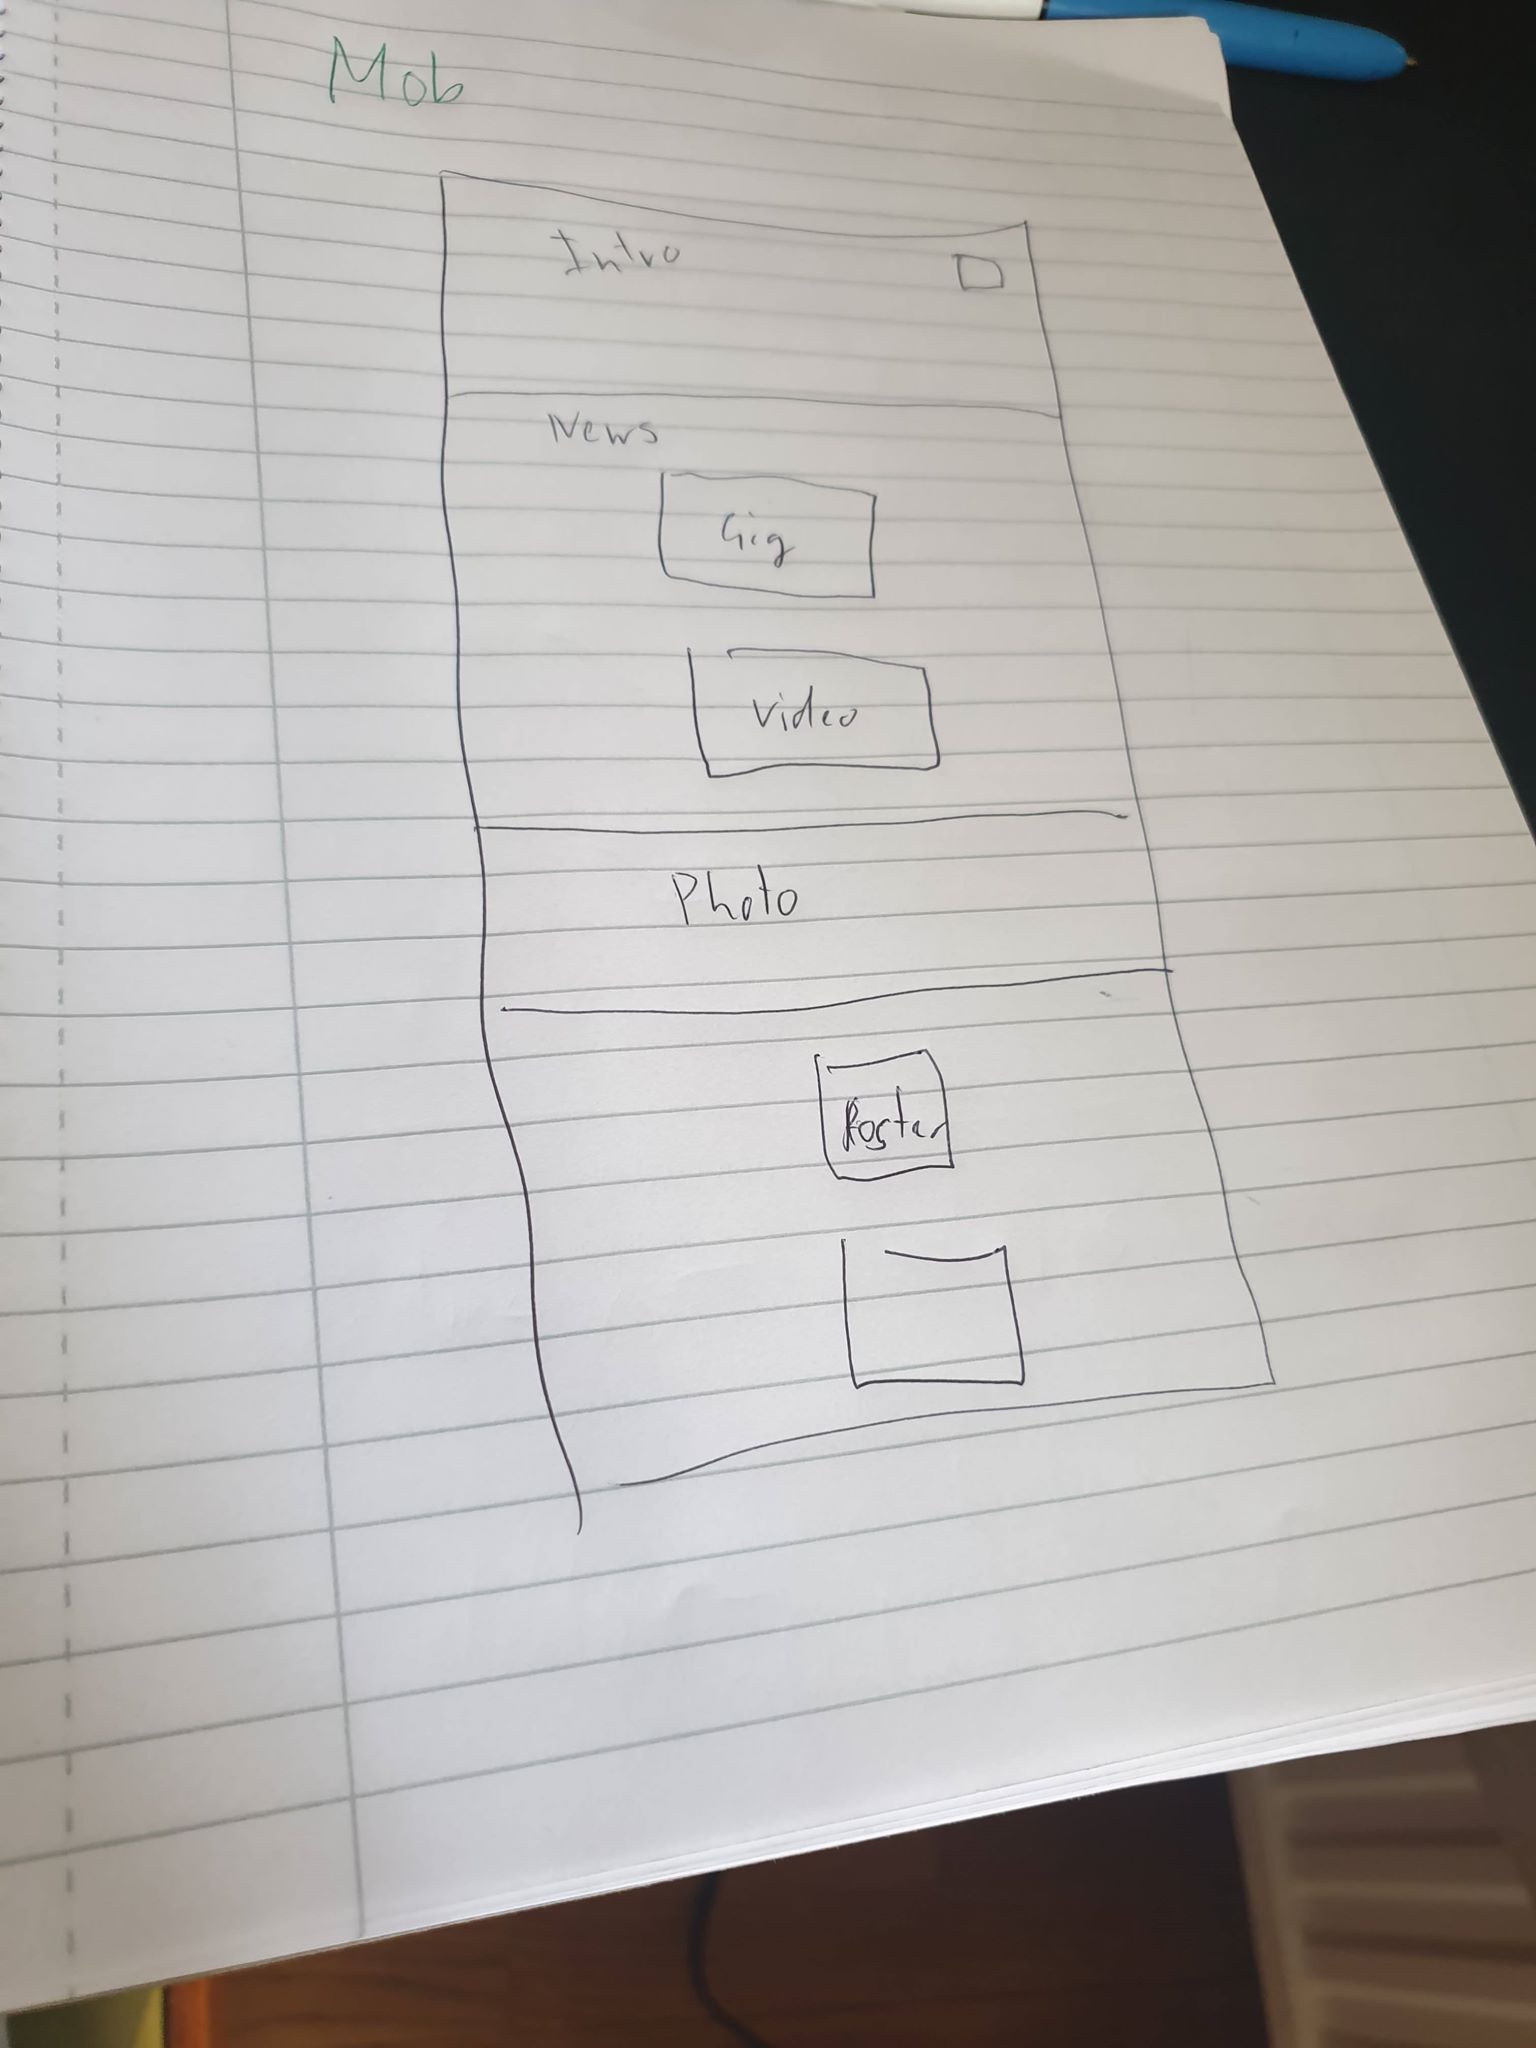 Mob
Intro
News
Gig
Video
Photo
Poster